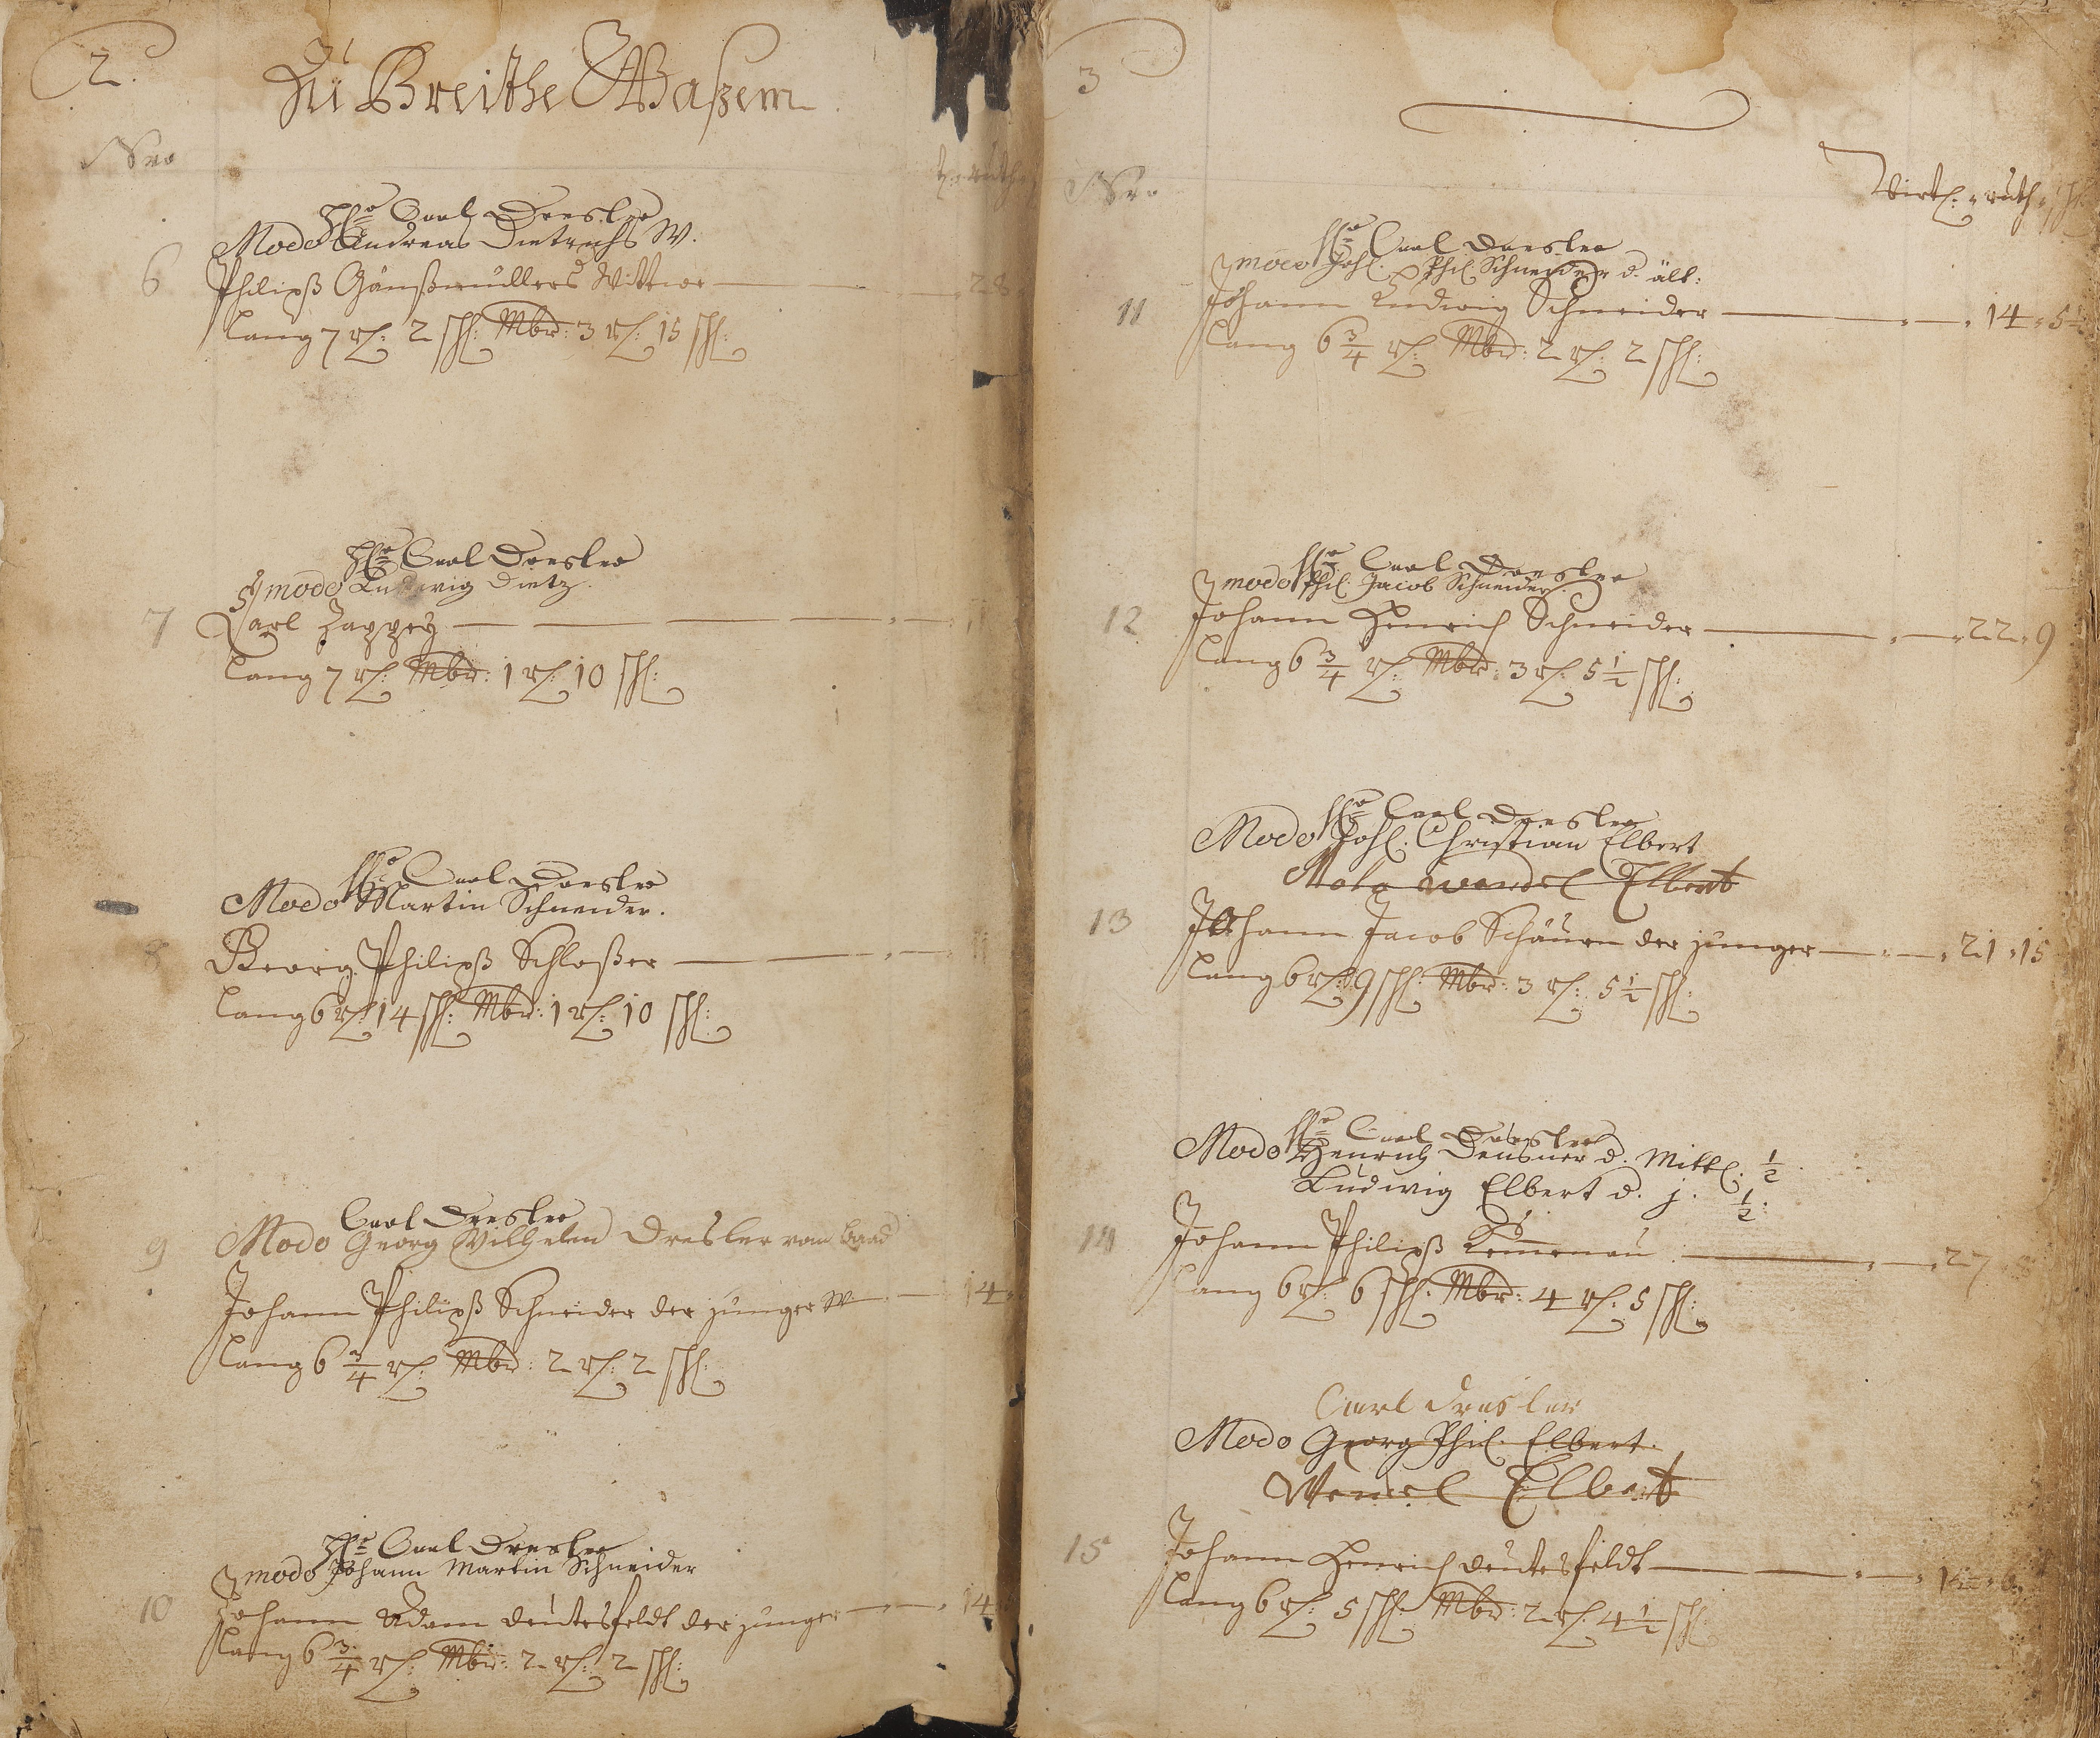 2.
Zu Breithe Waßem
Nro
ruth
Hr Carl Dresler
Modo Andreas Dietrichs W.
6 Philipß Gänßmüllers Wittwe 28
lang 7 r: 2 sch: Mbr: 3 r: 15 sch:
Hr Carl Dresler
modo Ludwig Dietz.
7 Carl Zappey 11
lang 7 r: Mbr: 1 r: 10 sch:
Hr Carl Dresler
Modo Martin Schneider.
8 Georg Philipß Schloßer 11
lang 6 r: 14 sch: Mbr: 1 r: 10 sch:
Carl Dresler
9 Modo Georg Wilhelm Dresler von
Johann Philipß Schneider der junger W. 14
lang 6 3/4 r: Mbr: 2 r: 2 sch:
Hr Carl Dresler
modo Johann Martin Schneider
10 Johann Adam deutesfeldt der junger 14
lang 6 3/4 r: Mbr: 2 r: 2 sch:
3
Nro
Virtl: ruth sch
Hr Carl Dresler
modo Joh. Phil. Schneider d. ält:
11 Johann Ludwig Schneider 14 5 1/2
lang 6 3/4 r: Mbr: 2 r: 2 sch:
Hr Carl Dresler
modo Phil. Jacob Schneider.
12 Johann Henrich Schneider 22 9
lang 6 3/4 r: Mbr: 3 r: 5 1/2 sch:
Hr Carl Dresler
Modo Joh. Christian Elbert
Modo Wendel Elbert
13 Johann Jacob Schäurn der junger 21 15
lang 6 r: 9 sch: Mbr: 3 r: 5 1/2 sch:
Hr Carl Dresler
Modo Henrich Deusner d. Mittl. 1/2
Ludwig Elbert d. j. 1/2
14 Johann Philipß Kemenau 27
lang 6 r: 6 sch: Mbr: 4 r: 5 sch:
Carl Dresler
Modo Georg Phil. Elbert.
Wendel Elbert
15 Johann Henrich deutesfeldt
lang 6 r: 5 sch: Mbr: 2 r: 4 1/2 sch: